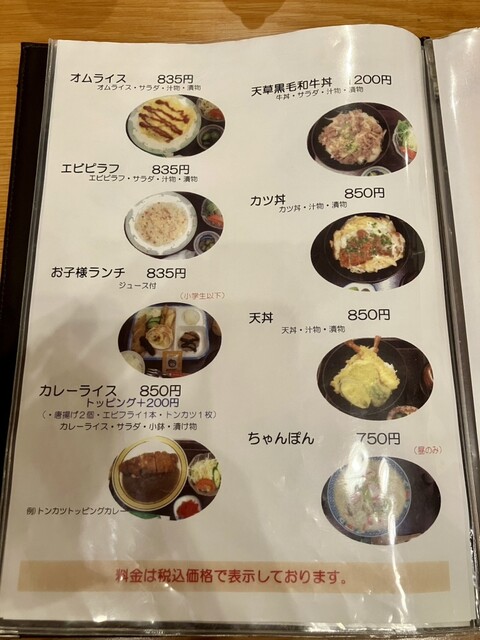 オムライス 835円
オムライス・サラダ・汁物・漬物
エビピラフ 835円
エビピラフ・サラダ・汁物・漬物
お子様ランチ 835円
ジュース付
(小学生以下)
カレーライス 850円
トッピング+200円
(・唐揚げ2個・エビフライ1本・トンカツ1枚)
カレーライス・サラダ・小鉢・漬け物
例)トンカツトッピングカレー
天草黒毛和牛丼 1200円
牛丼・サラダ・汁物・漬物
カツ丼 850円
カツ丼・汁物・漬物
天丼 850円
天丼・汁物・漬物
ちゃんぽん 750円
(昼のみ)
料金は税込価格で表示しております。